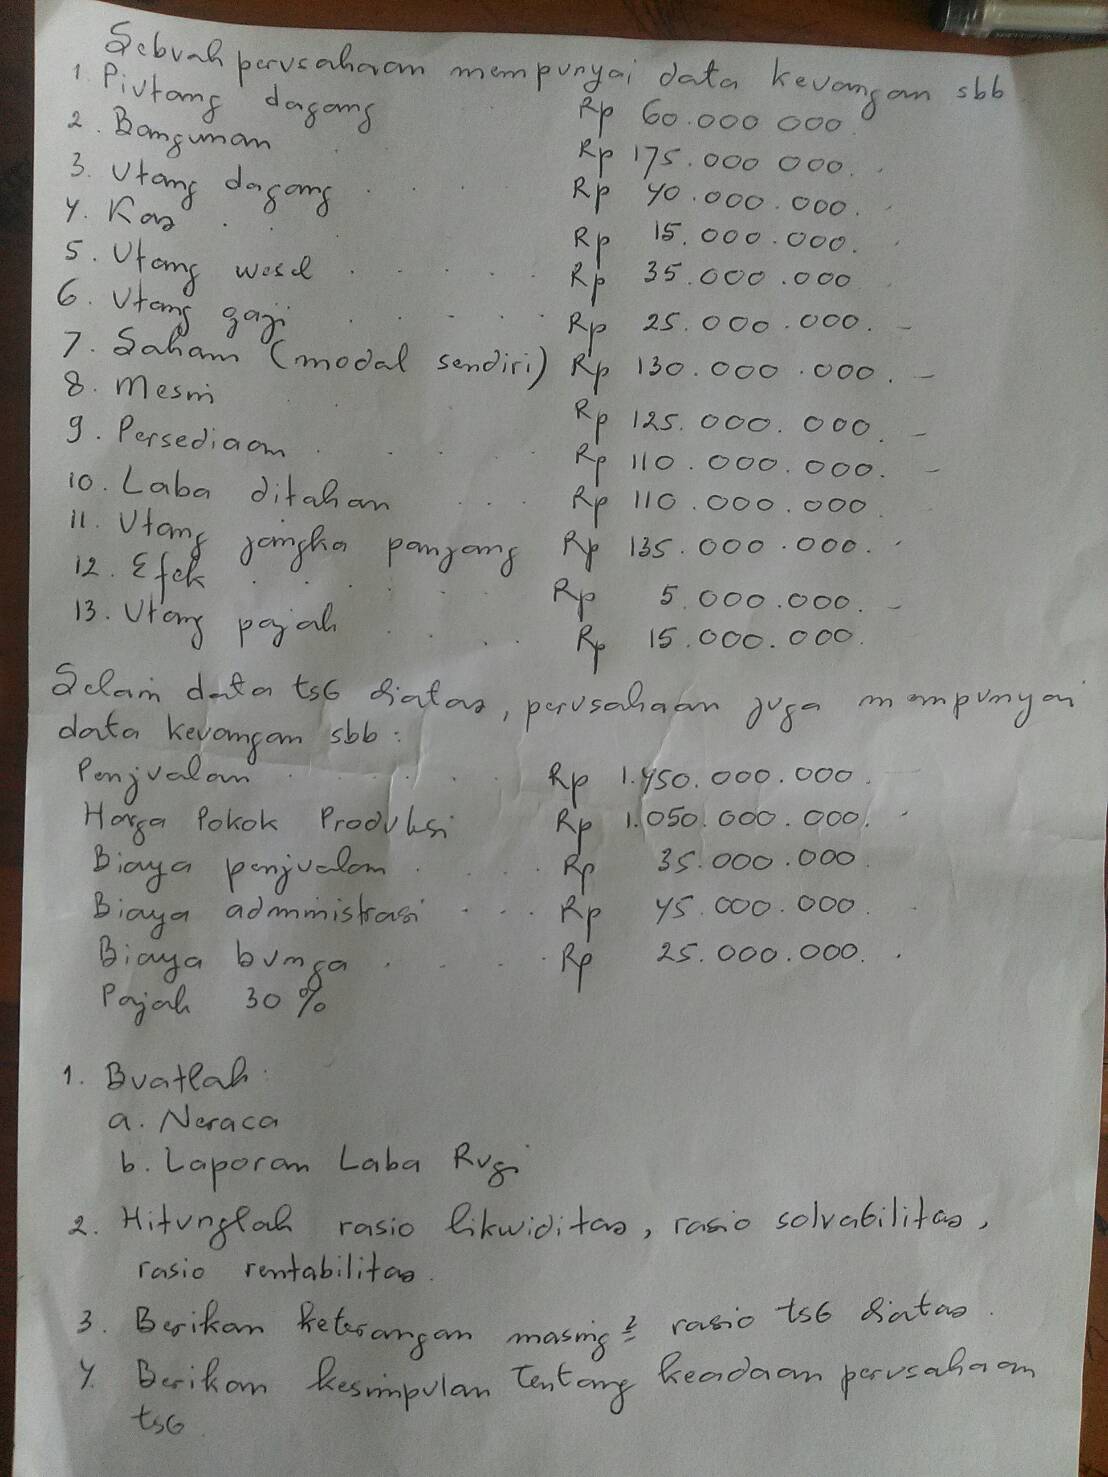 Sebuah perusahaan mempunyai data keuangan sbb
1. Piutang dagang Rp 60.000 000
2. Bangunan Rp 175.000 000.
3. Utang dagang . . . Rp 40.000.000.
4. Kas . . . Rp 15.000.000.
5. Utang wesel . . . . Rp 35.000.000
6. Utang gaji . . . . . Rp 25.000.000. -
7. Saham (modal sendiri) Rp 130.000.000. -
8. Mesin . . . Rp 125.000.000. -
9. Persediaan . . . . Rp 110.000.000. -
10. Laba ditahan . . . Rp 110.000.000
11. Utang jangka panjang Rp 135.000.000.
12. Efek . . . . . Rp 5.000.000. -
13. Utang pajak . . . . Rp 15.000.000.
Selain data tsb diatas, perusahaan juga mempunyai
data keuangan sbb :
Penjualan . . . . Rp 1.450.000.000.
Harga Pokok Produksi Rp 1.050.000.000.
Biaya penjualan . . . . Rp 35.000.000
Biaya administrasi . . . Rp 45.000.000
Biaya bunga . . . . Rp 25.000.000. .
Pajak 30 %
1. Buatlah :
a. Neraca
b. Laporan Laba Rugi
2. Hitunglah rasio likwiditas, rasio solvabilitas,
rasio rentabilitas.
3. Berikan keterangan masing² rasio tsb diatas.
4. Berikan kesimpulan tentang keadaan perusahaan
tsb.